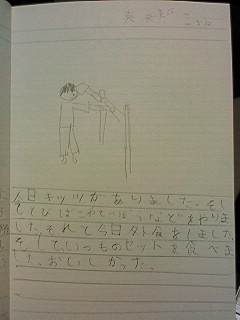 今日キッツがありました。そ
してとびばこやてつぼうなどをやりま
した。それと今日外食をしました
そしていつものセットを食べま
した。おいしかった。